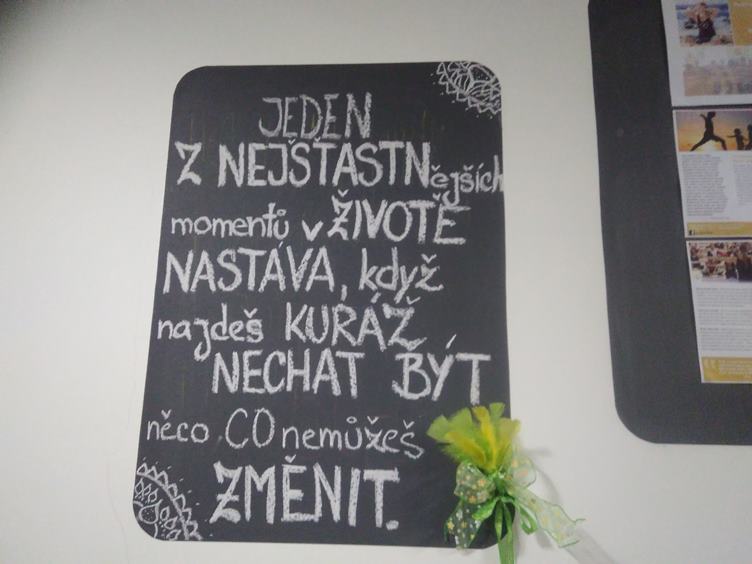 JEDEN
Z NEJŠTASTNějších
momentů v ŽIVOTĚ
NASTÁVA, když
najdeš KURÁŽ
NECHAT BÝT
něco CO nemůžeš
ZMĚNIT.